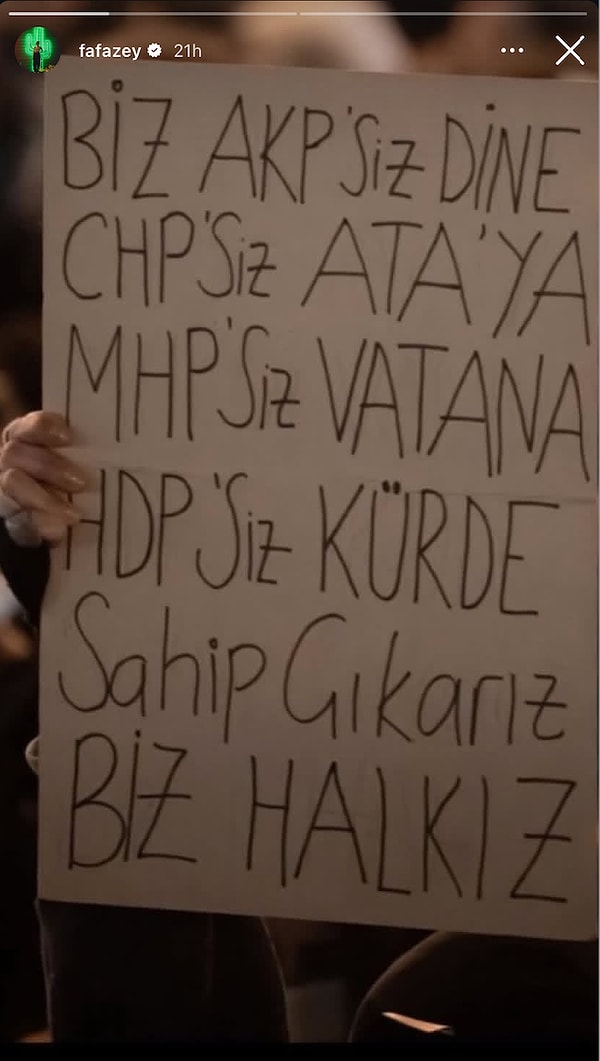 fafazey 21h
BİZ AKP'SİZ DİNE
CHP'SİZ ATA'YA
MHP'SİZ VATANA
HDP'SİZ KÜRDE
Sahip Çıkarız
BİZ HALKIZ